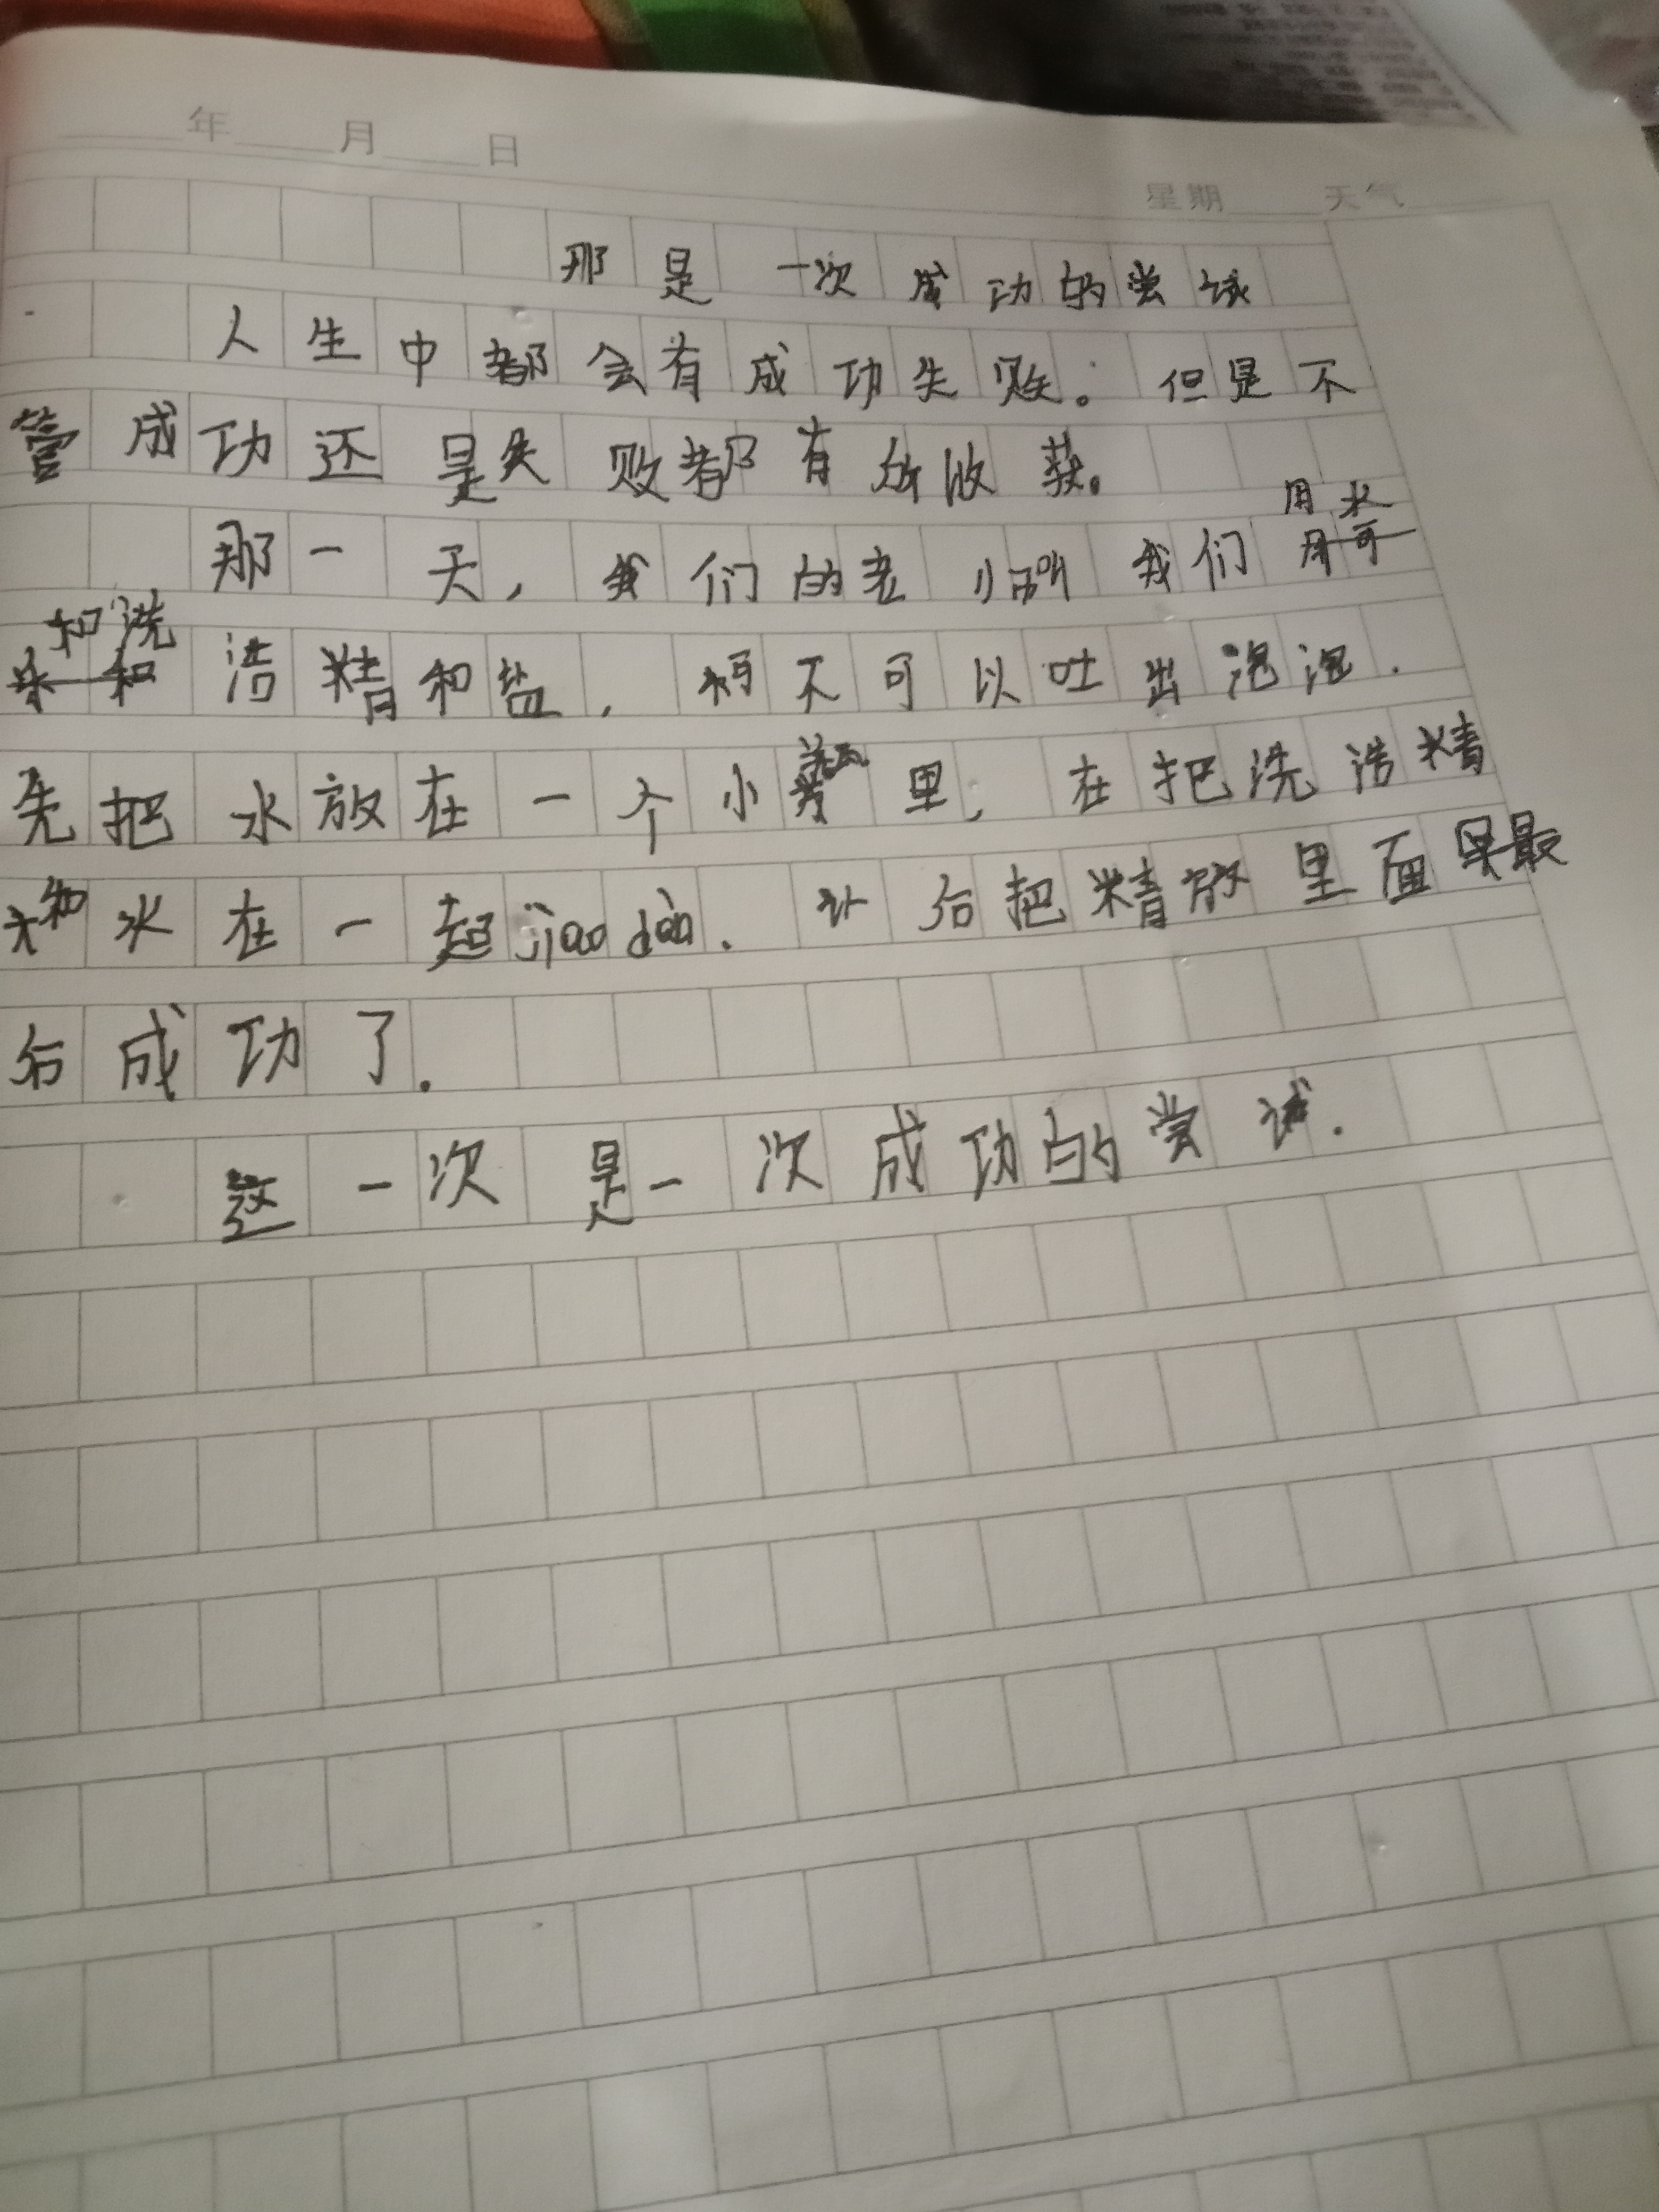 年 月 日
星期 天气
那是一次成功的尝试
人生中都会有成功失败。但是不
管成功还是失败都有放收获。
用水
那一天，我们的老师叫我们用可
和洗
乐和洁精和盐，不可以吐出泡泡.
先把水放在一个小 里，在把洗洁精
和水在一起jiao dòn. 后把精放里面 最
后成功了.
这一次是一次成功的尝试.